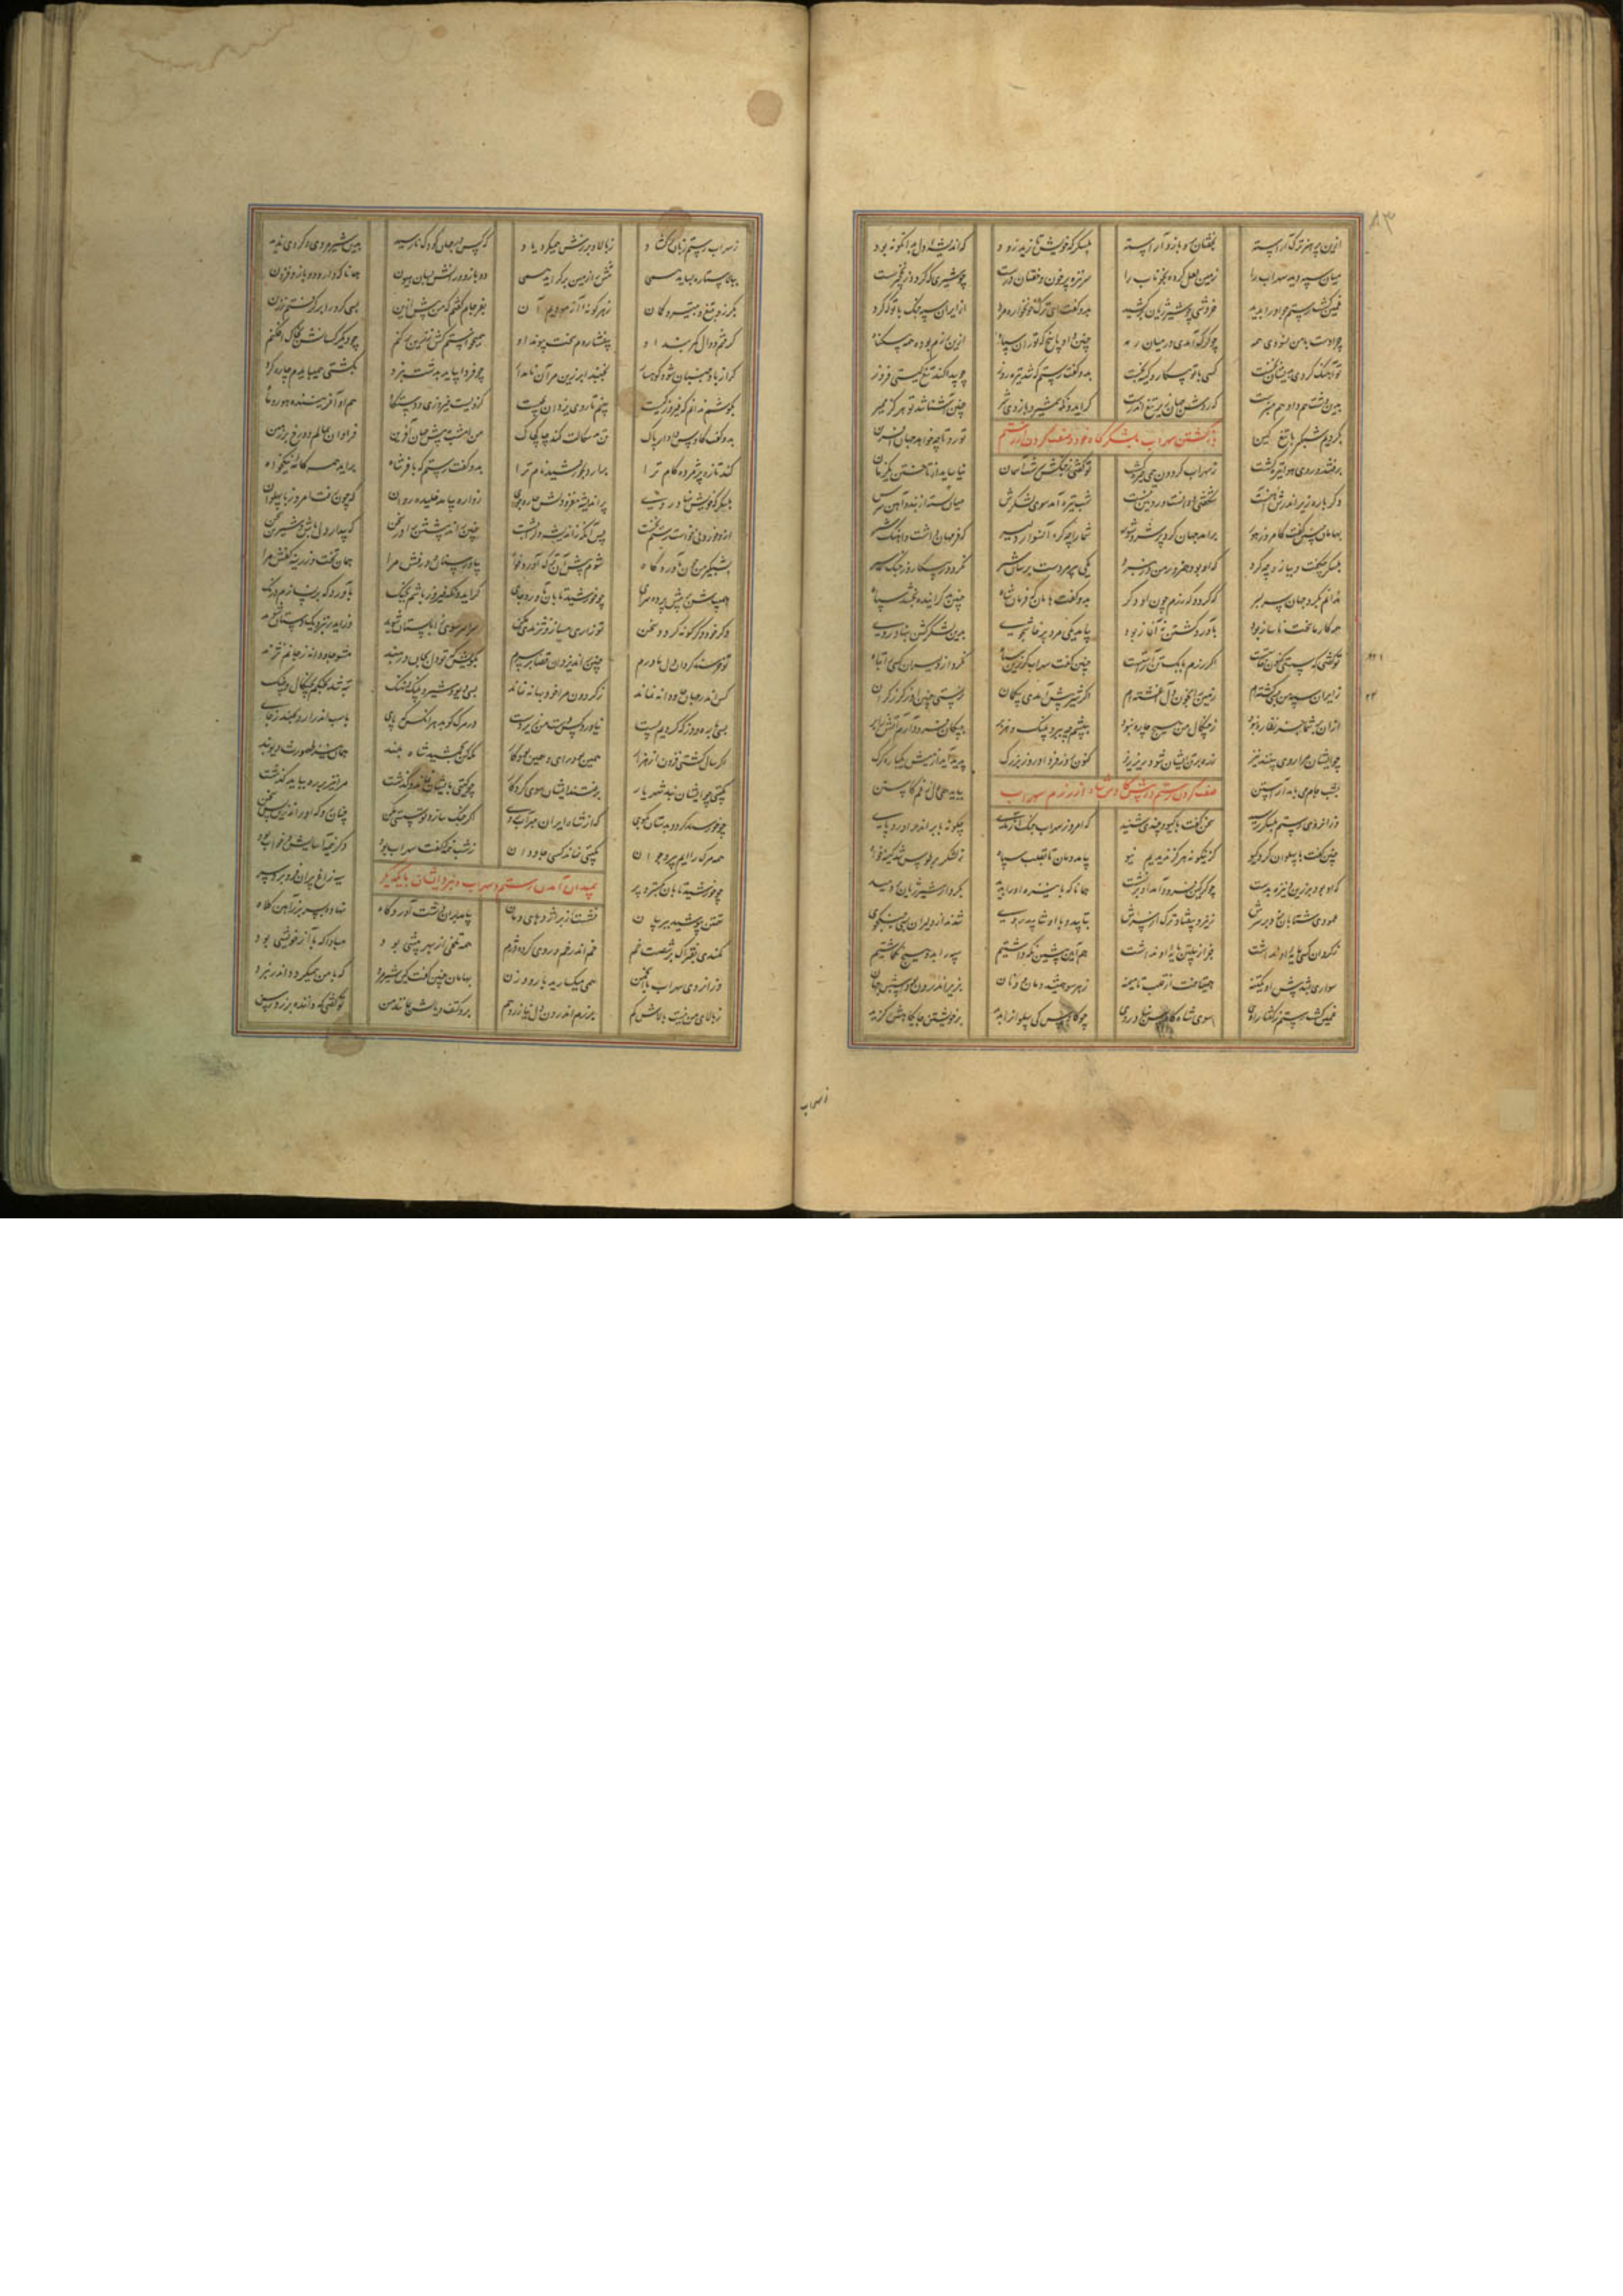 ازین پرهنر ترک آراسته بخفتان بر و بازو آراسته بلشکرگه خویش تازید زود که اندیشه دل بدانگونه بود
میان سپه دید سهراب را زمین لعل کرده بخوناب را سر نیزه پر خون و خفتان و دست چو شیری که گردد ز نخچیر مست
غمین گشت رستم چو او را بدید خروشی چو شیر ژیان برکشید بدو گفت ای ترک خونخواره مرد از ایران سپه جنگ با تو که کرد
چرا دست با من نسودی همه چو گرگ آمدی در میان رمه چنین داد پاسخ که توران سپاه ازین رزم بودند همه بیگناه
تو آهنگ کردی بدیشان نخست کسی با تو پیکار و کینه نجست بدو گفت رستم که شد تیره روز چو پیدا کند تیغ گیتی فروز
بدین دشت هم دار و هم منبرست که روشن جهان زیر تیغ اندرست گر ایدونکه شمشیر و بازوی شیر چنین آشنا شد تو هرگز ممیر
بگردیم شبگیر با تیغ کین تو رو تا چه خواهد جهان آفرین
بازگشتن سهراب بلشکرگاه خود و صفت کردن از رستم
برفتند و روی هوا تیره گشت ز سهراب گردون همی خیره گشت تو گفتی ز جنگش سرشت آسمان نیاساید از تاختن یکزمان
وگر باره زیر اندرش آهنست شگفتی روانست و رویین تنست شب تیره آمد سوی لشکرش میان سوده از بند و آهن برش
بهامان چنین گفت کامروز هور برآمد جهان کرد پر شر و شور شما را چه کرد آن سوار دلیر که فر مهان داشت و آهنگ شیر
بلشکر چه گفت و بیاز و چه کرد که او بود هم زور من در نبرد یکی پیرمردست برسان شیر نگردد ز پیکار و ز جنگ سیر
بدو گفت هامان که فرمان شاه چنین بد کز ایدر نجنبد سپاه
همه کار ما سخت ناساز بود بآورد گشتن نه آغاز بود بیامد یکی مرد پرخاشجوی بدین لشکر گشن بنهاد روی
تو گفتی ز مستی کنون خاست اگر رزم با یک تن آراست چنین گفت سهراب کو زین سپاه نکرد از دلیران کسی را تباه
از ایران سپه من بسی کشته‌ام زمین را بخون گل آغشته‌ام اگر شیر پیش آمدی بیگمان نرستی چنین از گرز گران
ازان بر شما جز نظاره نبود ز چنگال من هیچ چاره نبود بپیشم چه ببر و پلنگ و هزبر به پیکان فرود آرم آتش ز ابر
چو ایشان مرا روی بینند تیز زره بر تن ایشان شود ریز ریز کنون روز فردا و روز بزرگ پدید آید از میش یکباره گرگ
بشب جام می باید آراستن بباید همی دل ز غم کاستن
صفت کردن رستم در پیش کاوس شاه از رزم سهراب
وزان روی رستم بلشکر رسید سخن گفت با گیو و چندی شنید که امروز سهراب جنگ آزمای چگونه بجنگ اندر آورد پای
چنین گفت با پهلوان گرد گیو کزینگونه هرگز ندیدیم نیو بیامد دمان تا بقلب سپاه ز لشکر بر طوس شد کینه خواه
که او بود بر زین و نیزه بدست چو گرگین فرود آمد او برنشست همانا که با نیزه او را بدید بکردار شیر ژیان بردمید
عمودی شتابان بزد بر سرش ز نیرو بیفتاد ترک از سرش بتابید با او و بتابید روی شدند از دلیران بسی جنگجوی
ز گردان کسی پایه او نداشت جز از پیلتن پایه او نداشت هم آیین پیشین نگه داشتیم سپه را بدو هیچ نگماشتیم
سواری نشد پیش او یکتنه همی تاخت از قلب تا میمنه ز هر سو همیشد دمان و دنان بزیر اندرون
غمین گشت رستم ز گفتار اوی سوی شاه کاوس بنهاد روی چو کاوس کی پهلوان را بدید بر خویشتن جایگاهش گزید
ز سهراب
ز سهراب رستم زبان برگشاد ز بالا و برزش همیکرد یاد که کس در جهان کودک نارسید بدین شیرمردی و گردی ندید
ببالا ستاره بساید همی تنش را زمین برگراید همی دو بازو و رانش بسان هیون همانا که دارد دو بازو فزون
بگرز و بتیغ و بتیر و کمان ز هر گونه‌ای آزمودیم آن سرانجام گفتم که من پیش ازین بسی گرد را برگرفتم ز زین
گرفتم دوال کمربند او بیفشاردم سخت پیوند او همیخواستم کش ز زین برکنم چو دیگر کسانش بخاک افکنم
گر از باد جنبان شود کوهسار نجنبد ابر زین بر آن نامدار چو فردا بیاید بدشت نبرد بکشتی همی بایدم چاره کرد
بکوشم ندانم که فیروز کیست ببینم تا رای یزدان بچیست کزویست فیروزی و دستگاه هم او آفریننده هور و ماه
بدو گفت کاوس یزدان پاک تن بدسگالت کند چاک چاک من امشب به پیش جهان آفرین فراوان بمالم دو رخ بر زمین
کند تازه پژمرده کام ترا برآرد بخورشید نام ترا بدو گفت رستم که با فر شاه برآید همه کامه نیکخواه
بلشکرگه خویش بنهاد روی پر اندیشه مغز و دلش چاره جوی زواره بیامد خلیده روان که چون رفت امروز با پهلوان
ازو خوردنی خواست رستم نخست پس آنگه ز اندیشه دل بشست چنین راند پیشش از سخن که بیدار دل باش و تندی مکن
بشبگیر من چون بآوردگاه شوم پیش آن ترک آوردخواه بیاور سپاه و درفش مرا همان تخت و زرینه کفش مرا
همی باش بر پیش پرده سرای چو خورشید تابان برآید ز جای گر ایدونکه فیروز باشم بجنگ بآورد گه بر نسازم درنگ
وگر خود دگرگونه گردد سخن تو زاری میاز و تندی مکن سراسر سوی زابلستان شوید
تو خرسند گردان دل مادرم چنین راند یزدان قضا بر سرم بگویش که تو دل بمن در مبند مشو جاودانه ز جانم نژند
کس اندر جهان جاودانه نماند ز گردون مرا خود بهانه نماند بسی دیو و شیر و پلنگ و نهنگ تبه شد بچنگم بهنگام جنگ
بسی باره و دز که کردیم پست نیاورد کس دست من زیر دست در مرگ را آن بکوبد که پای باسب اندر آرد بجنبد ز جای
اگر سال گشتی فزون از هزار همین بود رای و همین بود کار نگه کن بجمشید شاه بلند همان نیز طهمورث دیوبند
بگیتی چو ایشان نبد شهریار برفتند ایشان سوی کردگار چو گیتی بدیشان نماند و گذشت مرا نیز بر ره بباید گذشت
چو خرسند گردد بدستان بگوی که از شاه ایران متاب روی اگر جنگ سازد تو سستی مکن چنان رو که او راند از بن سخن
همه مرگ راییم پیر و جوان بگیتی نماند کسی جاودان ز شب نیمه‌ای گفت سهراب بود دگر نیمه آسایش و خواب بود
بمیدان آمدن رستم و سهراب و نبرد ایشان با یکدیگر
چو خورشید تابان بگسترد پر سیه زاغ پران فرو برد سر
تهمتن بپوشید ببر بیان نشست از بر اژدهای دمان بیامد بران دشت آوردگاه نهاده بسر بر ز آهن کلاه
کمندی بفتراک بر شصت خم خم اندر خم و روی کرده دژم همه تلخی از بهر بیشی بود مبادا که با آز خویشی بود
وزان روی سهراب با انجمن همی میگسارید با رود زن بهامان چنین گفت کین شیرمرد که با من همیگردد اندر نبرد
ز بالای من نیست بالاش کم برزم اندرون دل ندارد دژم بر و کتف و یالش همانند من تو گفتی که داننده برزد رسن